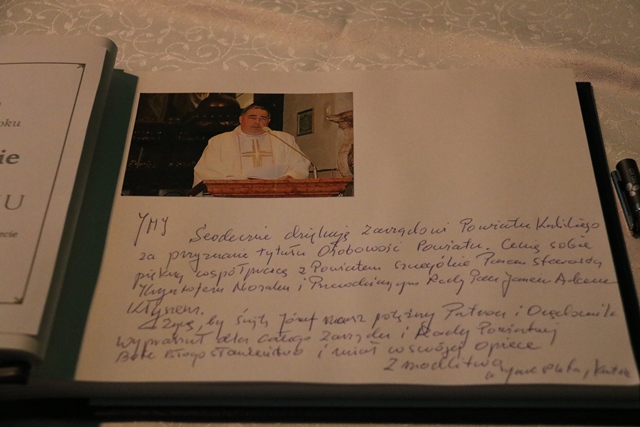 oku
ie
U
ecie
JMJ Serdecznie dziękuję Zarządowi Powiatu Kaliskiego
za przyznanie tytułu Osobowość Powiatu. Cenię sobie
piękną współpracę z Powiatem szczególnie Panem Starostą
Krzysztofem Nosalem i Przewodniczącym Rady Panem Janem Adamem
Kłysem.
Życzę, by święty Józef nasz potężny Patron i Orędownik
wypraszał dla całego Zarządu i Rady Powiatowej
Boże błogosławieństwo i miał w swojej opiece
Z modlitwą